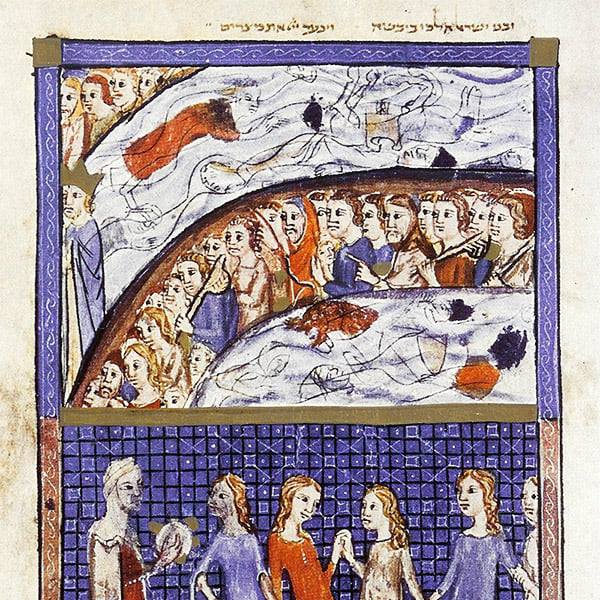 ובני ישראל הלכו ביבשה וינער יי את מצרים